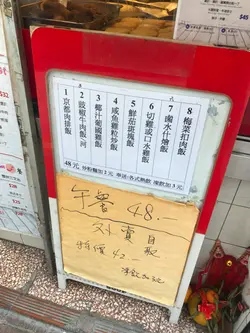 1 京都肉排飯
2 豉椒牛肉飯/河
3 椰汁葡國雞飯
4 咸魚雞粒炒飯
5 鮮茄斑塊飯
6 切雞或口水雞飯
7 鹵水什燴飯
8 梅菜扣肉飯
48元 炒粉麵加2元 奉送:各式熱飲 凍飲加3元
午餐 48.—
外賣自取
特價 42.—